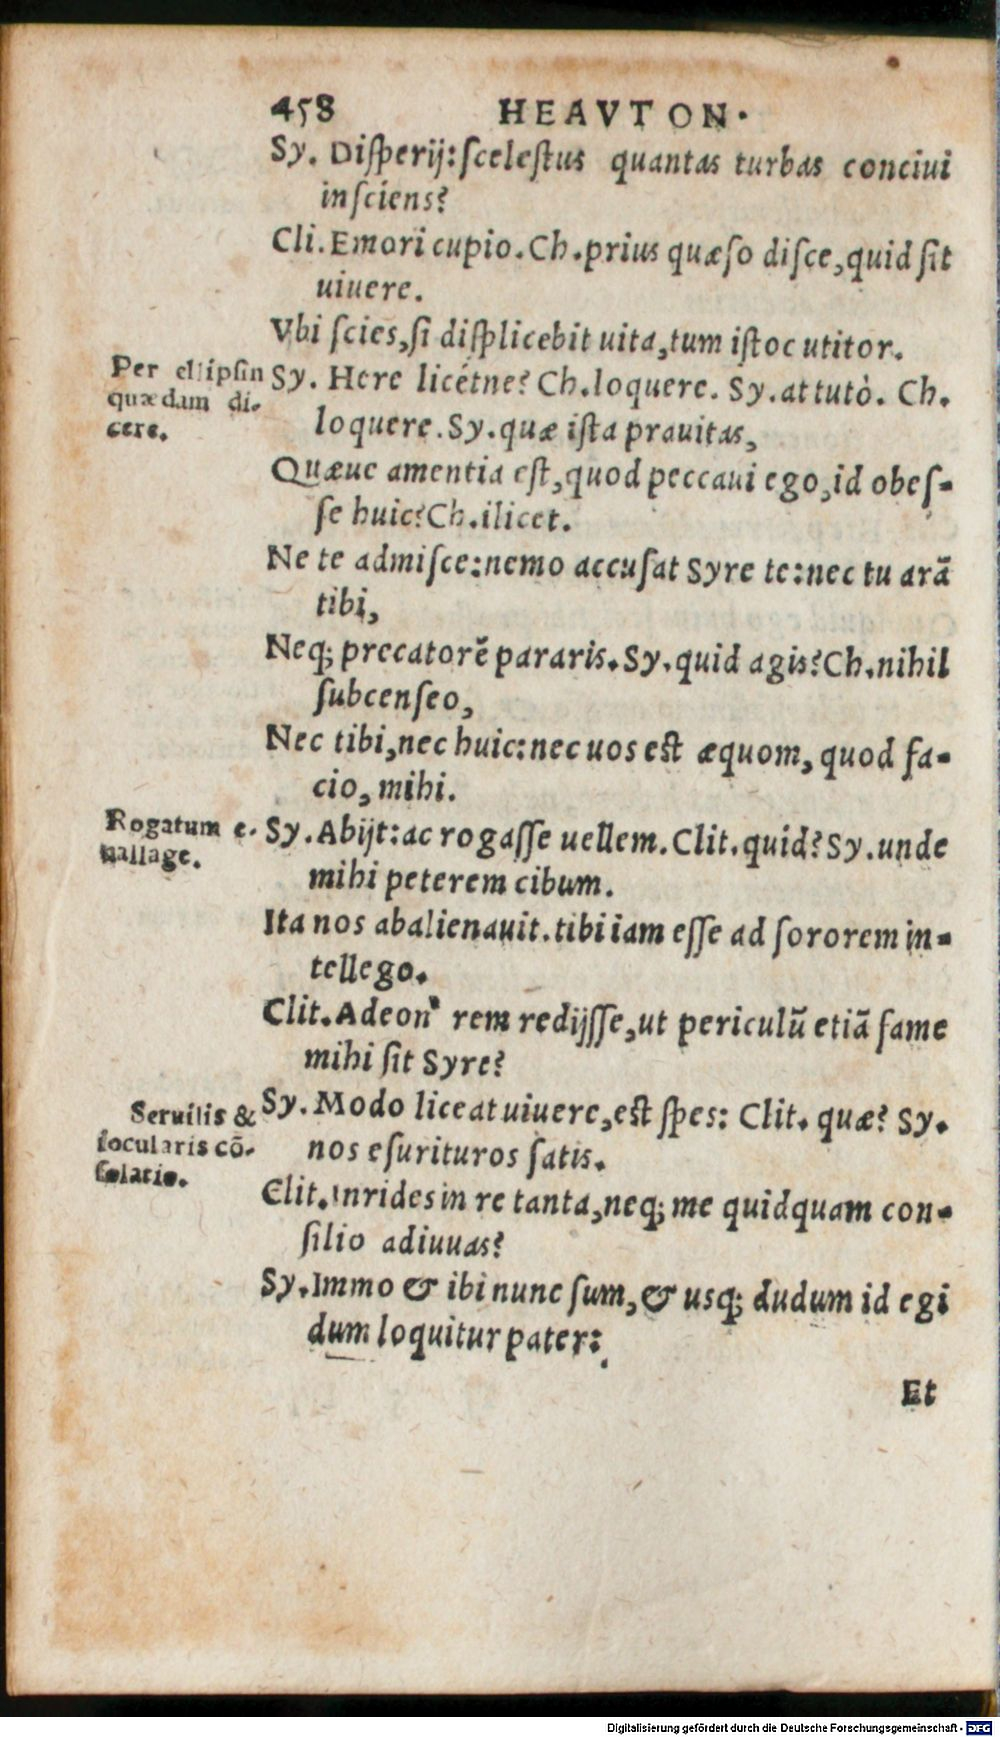 458 HEAVTON.
Sy. Diſperij: ſceleſtus quantas turbas conciui
inſciens?
Cli. Emori cupio. Ch. prius quæſo diſce, quid ſit
uiuere.
Vbi ſcies, ſi diſplicebit uita, tum iſtoc utitor.
Per ellipſin
quædam di-
cere.
Sy. Here licétne? Ch. loquere. Sy. at tutò. Ch.
loquere. Sy. quæ iſta prauitas,
Quæue amentia eſt, quod peccaui ego, id obeſ-
ſe huic? Ch. ilicet.
Ne te admiſce: nemo accuſat Syre te: nec tu arā
tibi,
Neq; precatorē pararis. Sy. quid agis? Ch. nihil
ſubcenſeo,
Nec tibi, nec huic: nec uos eſt æquom, quod fa-
cio, mihi.
Rogatum e-
nallage.
Sy. Abijt: ac rogaſſe uellem. Clit. quid? Sy. unde
mihi peterem cibum.
Ita nos abalienauit. tibi iam eſſe ad ſororem in-
tellego.
Clit. Adeon' rem redijſſe, ut periculū etiā fame
mihi ſit Syre?
Seruilis &
iocularis cō-
ſolatio.
Sy. Modo liceat uiuere, eſt ſpes: Clit. quæ? Sy.
nos eſurituros ſatis.
Clit. Inrides in re tanta, neq; me quidquam con-
ſilio adiuuas?
Sy. Immo & ibi nunc ſum, & usq; dudum id egi
dum loquitur pater:
Et
Digitalisierung gefördert durch die Deutsche Forschungsgemeinschaft - DFG